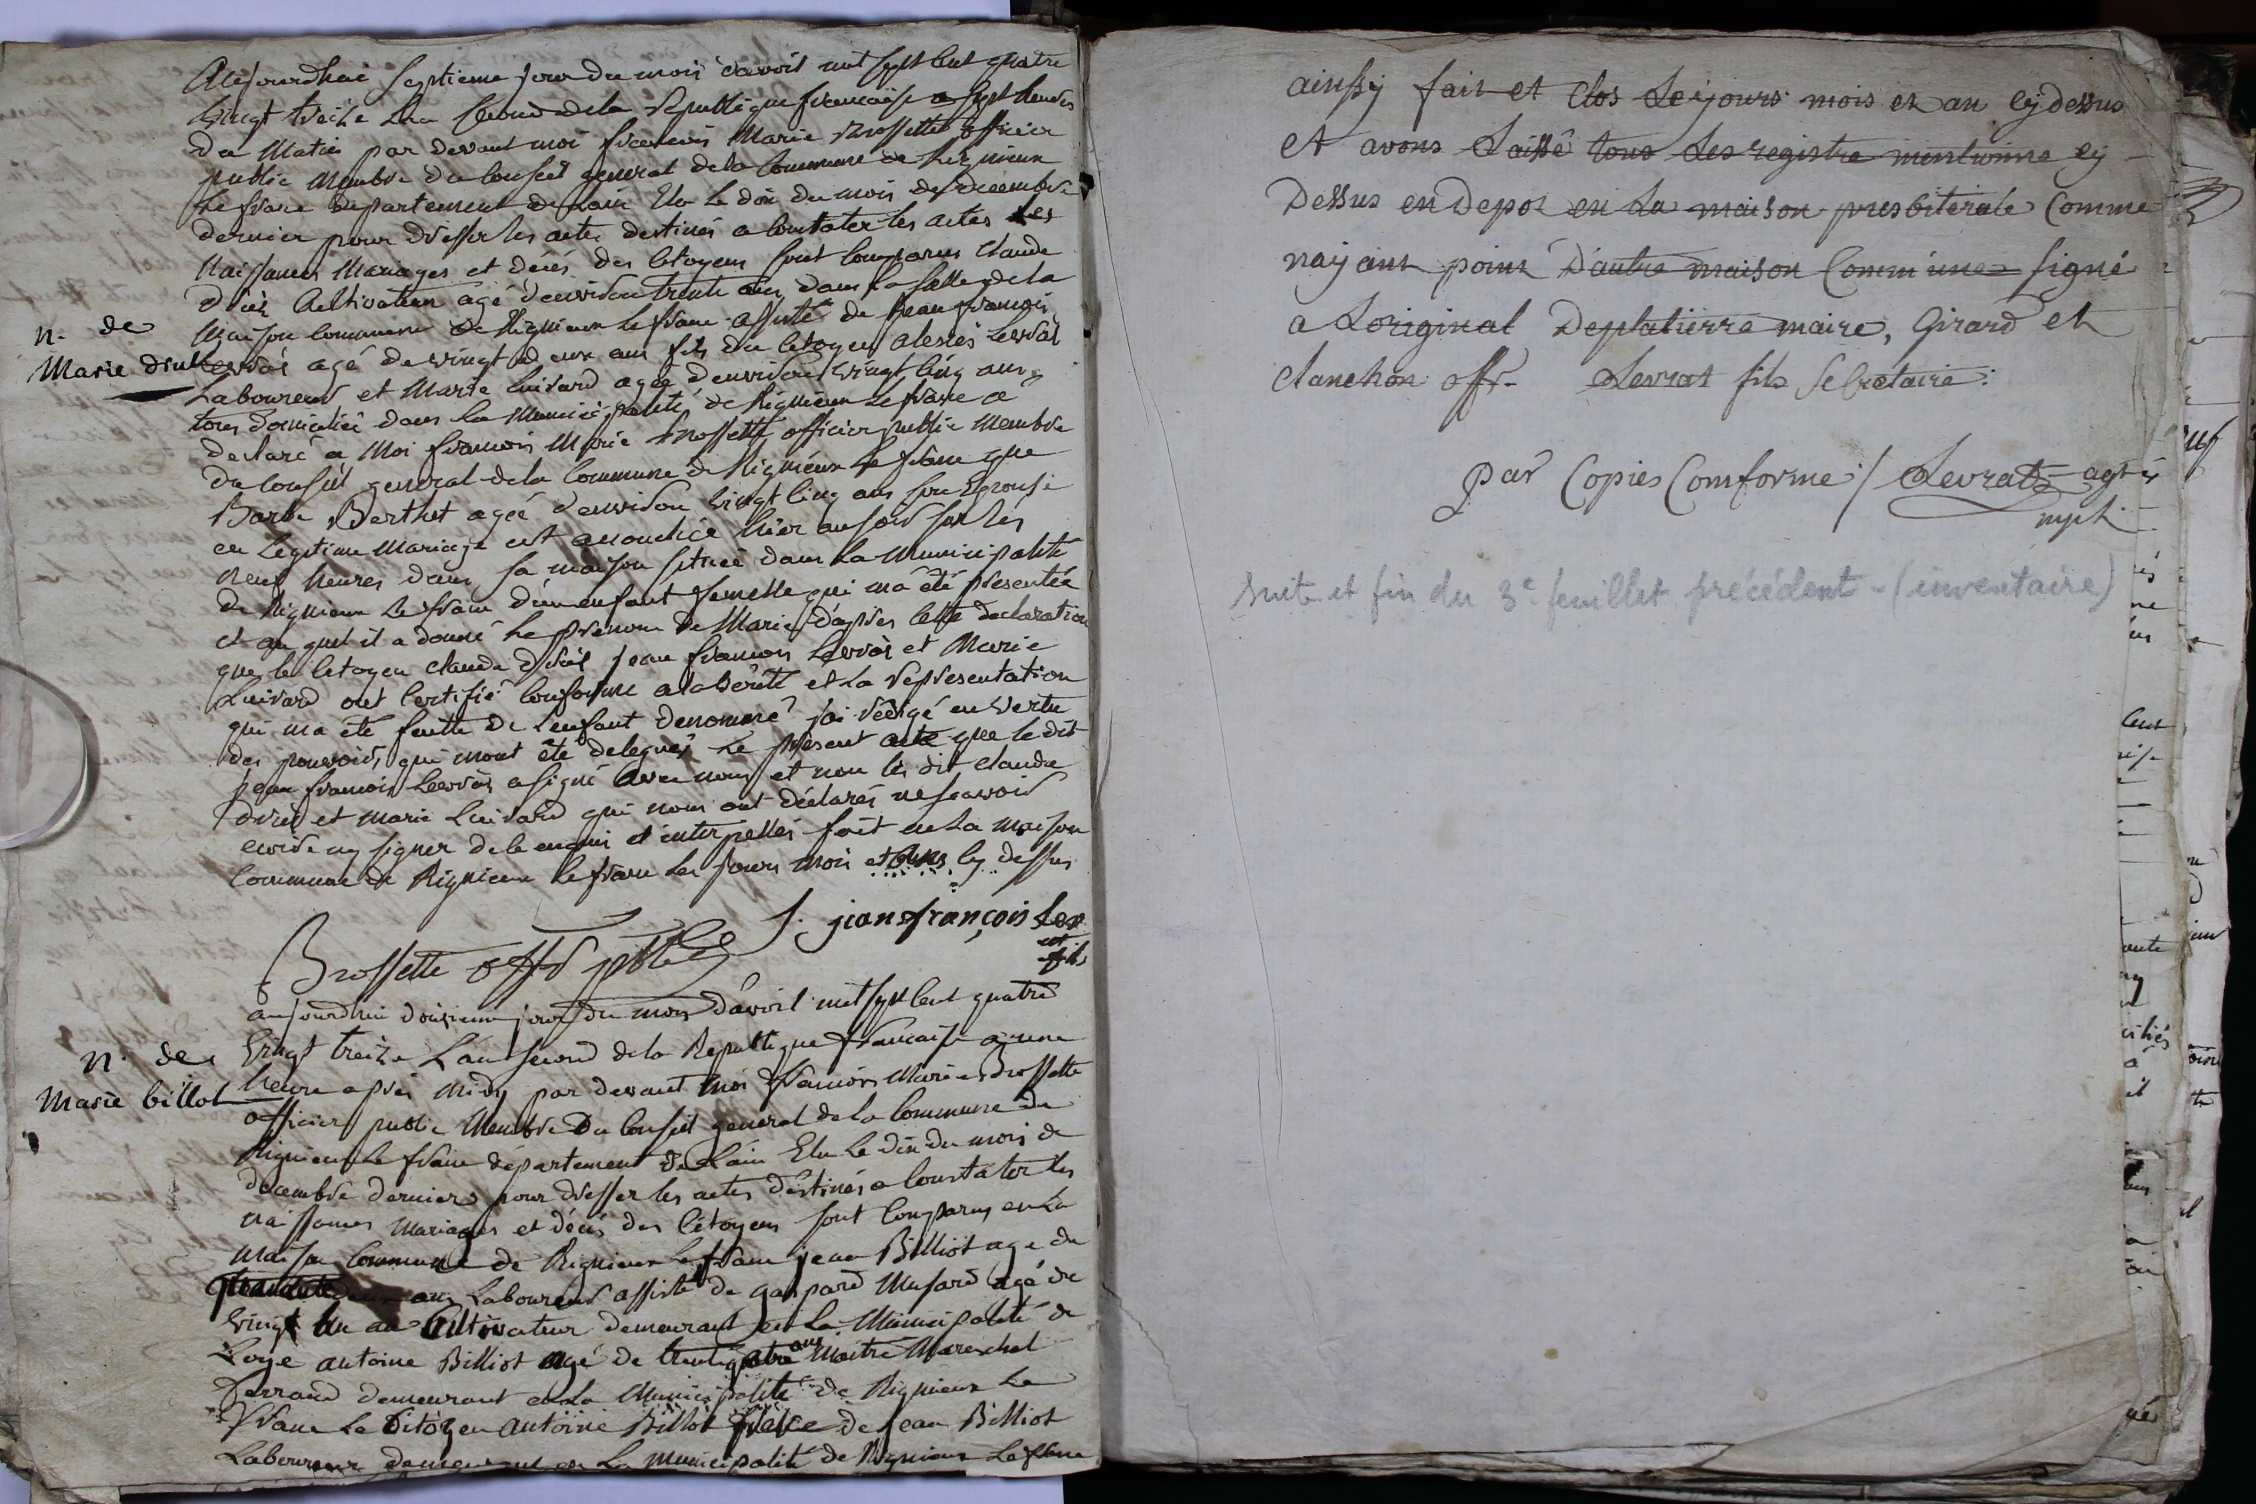 Aujourdhui septieme jour du mois davril mil sept cent quatre
vingt treize Lan second de la republique francaise a sept heures
du Matin par devant moi francois Marie Brossette officier
public Membre du Conseil general de la Commune de Rignieux
Le franc departement de Lain Elu Le dix du mois de decembre
dernier pour dresser les actes destinés a Constater les actes des
Naissances Mariages et décés des Citoyens sont Comparus Claude
druet Cultivateur agé denviron trente ans dans La salle de la
Maison Commune de Rignieux Le franc assisté de jean francois
n. de
Marie druet
Levrat agé de vingt deux ans fils du Citoyen alexis Levrat
Laboureur et Marie Luivard agée denviron vingt Cinq ans
tous domiciliés dans La Municipalité de Rignieux Le franc a
declaré a Moi francois Marie Brossette officier public Membre
du Conseil general de la Commune de Rignieux Le franc que
Barbe Berthet ageé denviron vingt Cinq ans son Epouse
en Legitime Mariage est accouchée hier au soir sur les
neuf heures dans sa maison situeé dans La Municipalité
de Rignieux Le franc dun enfant femelle qui ma été presenteé
et au quel il a donné Le prenom de Marie daprés Cette declaration
que le Citoyen Claude druet jean francois Levrat et Marie
Luivard ont Certifié Conforme a la verité et La representation
qui ma été faitte de Lenfant denommé jai redigé en vertu
des pouvoirs qui mont été delegués Le present acte que le dit
jean francois Levrat a signé avec nous et non les dit Claude
druet et marie Luivard qui nous ont déclarés ne scavoir
ecrire ny signer de le enquis et interpellés fait en La maison
Commune de Rignieux Le franc Les jours mois et ans Cy dessus
J. jean françois Lev
rat
fils
Brossette offr public
aujourdhui douzieme jour du mois davril mil sept Cent quatre
n. de
Marie billot
vingt treize Lan second de la Republique francaise a une
heure aprés Midy par devant Moi francois Marie Brossette
officier public Membre Du Conseil general de La Commune de
Rignieux Le franc département de Lain Elu Le dix du mois de
decembre dernier pour dresser les actes destinés a Constater les
naissances Mariages et décés des Citoyens sont Comparus en La
Maison Commune de Rignieux Le franc jean Billiot age de
ans Laboureur assisté de gaspard Musard agé de
vingt un an Cultivateur demeurant en La Municipalité de
Loye antoine Billiot agé de trente quatre ans Maitre Marechal
ferrand demeurant en La Municipalité de Rignieux Le
franc Le Citoyen antoine Billot frere de jean Billiot
Laboureur demeurant en La municipalité de Rignieux Le franc
ainssy fait et Clos Le jours mois et an cy dessus
et avons Laissé tous Les registre mentionné cy
Dessus en Depot en La maison presbiterale Comme
nayant point Dautre maison Commune signé
a Loriginal Deplatierre maire, Girard et
Clanchon offr. Levrat fils Secretaire.
par Copies Comforme / Levrat agt
mpl
Suite et fin du 3e feuillet précédent - (inventaire)